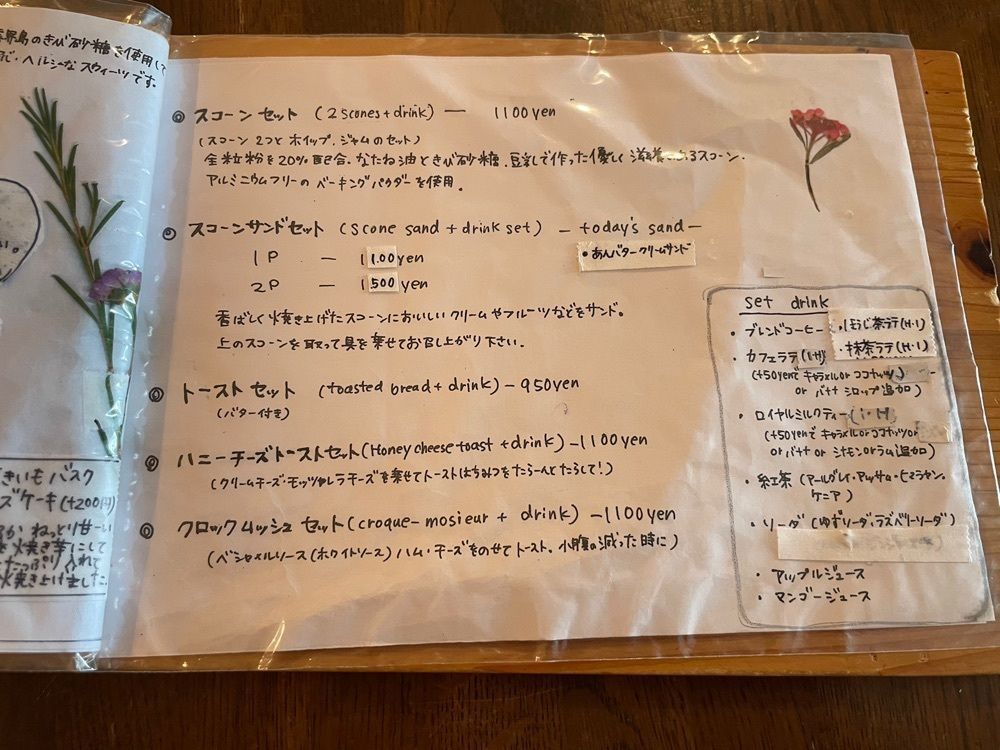 島のきび砂糖を使用して
ヘルシーなスウィーツです。
い。
きいもバスク
ズケーキ(+200円)
ねっとり甘~い
焼き芋にして
たっぷり入れて
焼き上げました
◎ スコーンセット (2 scones + drink) — 1100yen
(スコーン2つとホイップ、ジャムのセット)
全粒粉を20%配合。なたね油ときび砂糖、豆乳で作った優しく滋養あるスコーン。
アルミニウムフリーのベーキングパウダーを使用。
◎ スコーンサンドセット (Scone sand + drink set) – today's sand –
1P — 1100yen
• あんバタークリームサンド
2P — 1500yen
香ばしく焼き上げたスコーンにおいしいクリームやフルーツなどをサンド。
上のスコーンを取って具を乗せてお召し上がり下さい。
◎ トーストセット (toasted bread + drink) – 950yen
(バター付き)
◎ ハニーチーズトーストセット (Honey cheese toast + drink) – 1100yen
(クリームチーズ・モッツァレラチーズを乗せてトーストはちみつをたらーんとたらして!)
◎ クロックムッシュ セット (croque-mosieur + drink) – 1100yen
(ベシャメルソース(ホワイトソース)ハム・チーズをのせてトースト。小腹の減った時に)
set drink
・ブレンドコーヒー
・ほうじ茶ラテ(H・I)
・抹茶ラテ(H・I)
・カフェラテ(I・H)
(+50yenで キャラメル or ココナッツ
or バナナ シロップ追加)
・ロイヤルミルクティー(I・H)
(+50yenで キャラメル or ココナッツ or
or バナナ or シナモン or ラム 追加)
・紅茶 (アールグレイ・アッサム・ヒマラヤン・
ケニア)
・ソーダ (ゆずソーダ・ラズベリーソーダ)
・アップルジュース
・マンゴージュース